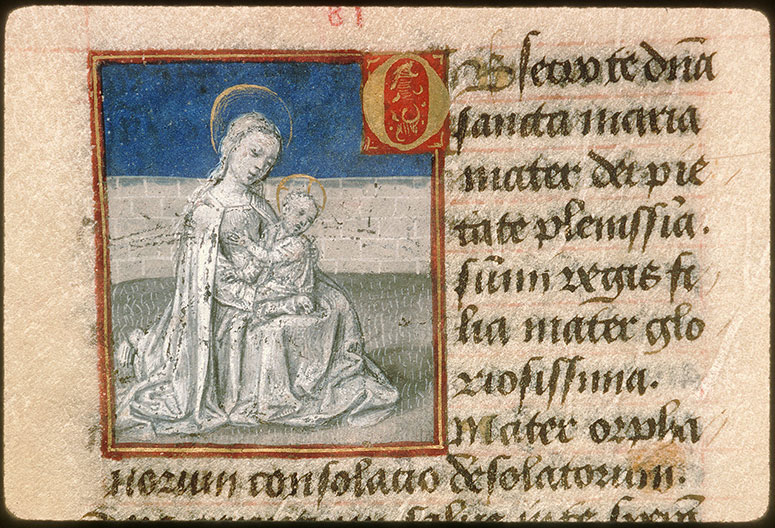 81
O Bsecro te dña
sancta maria
mater dei pie
tate plenissĩa.
sũmi regis fi
lia mater glo
riosissima.
Mater orpha
norum consolacio desolatorum.